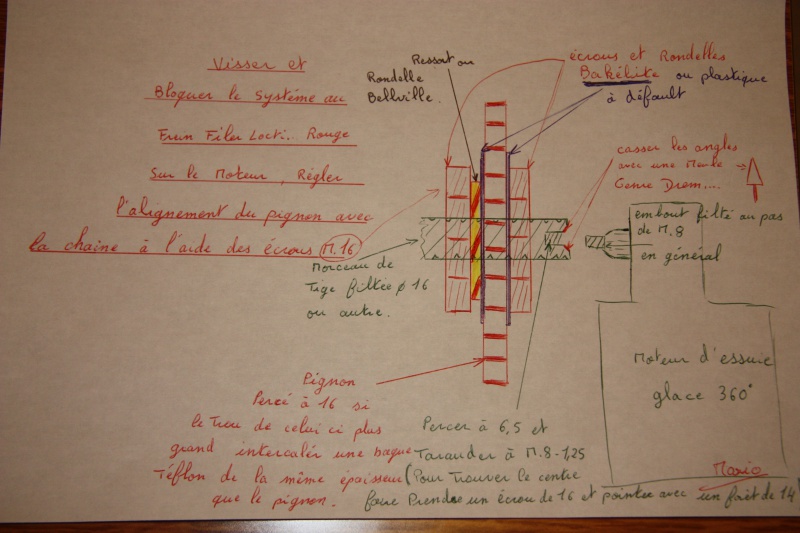 Visser et
Bloquer le système au
Frein Filet Locti... Rouge
Sur le Moteur, Régler
l'alignement du pignon avec
la chaîne à l'aide des écrous M.16
Ressort ou
Rondelle
Bellville.
écrous et Rondelles
Bakélite ou plastique
à défault
casser les angles
avec une Meule
Genre Drem....
embout filté au pas
de M.8
en général
Morceau de
Tige filtée ø 16
ou autre.
Moteur d'essuie
glace 360°
Mario
Pignon
Percé à 16 si
le Trou de celui ci plus
grand intercaler une bague
Téflon de la même épaisseur
que le pignon.
Percer à 6,5 et
Tarauder à M.8-1,25
(Pour Trouver le centre
faire Prendre un écrou de 16 et pointer avec un forêt de 14)